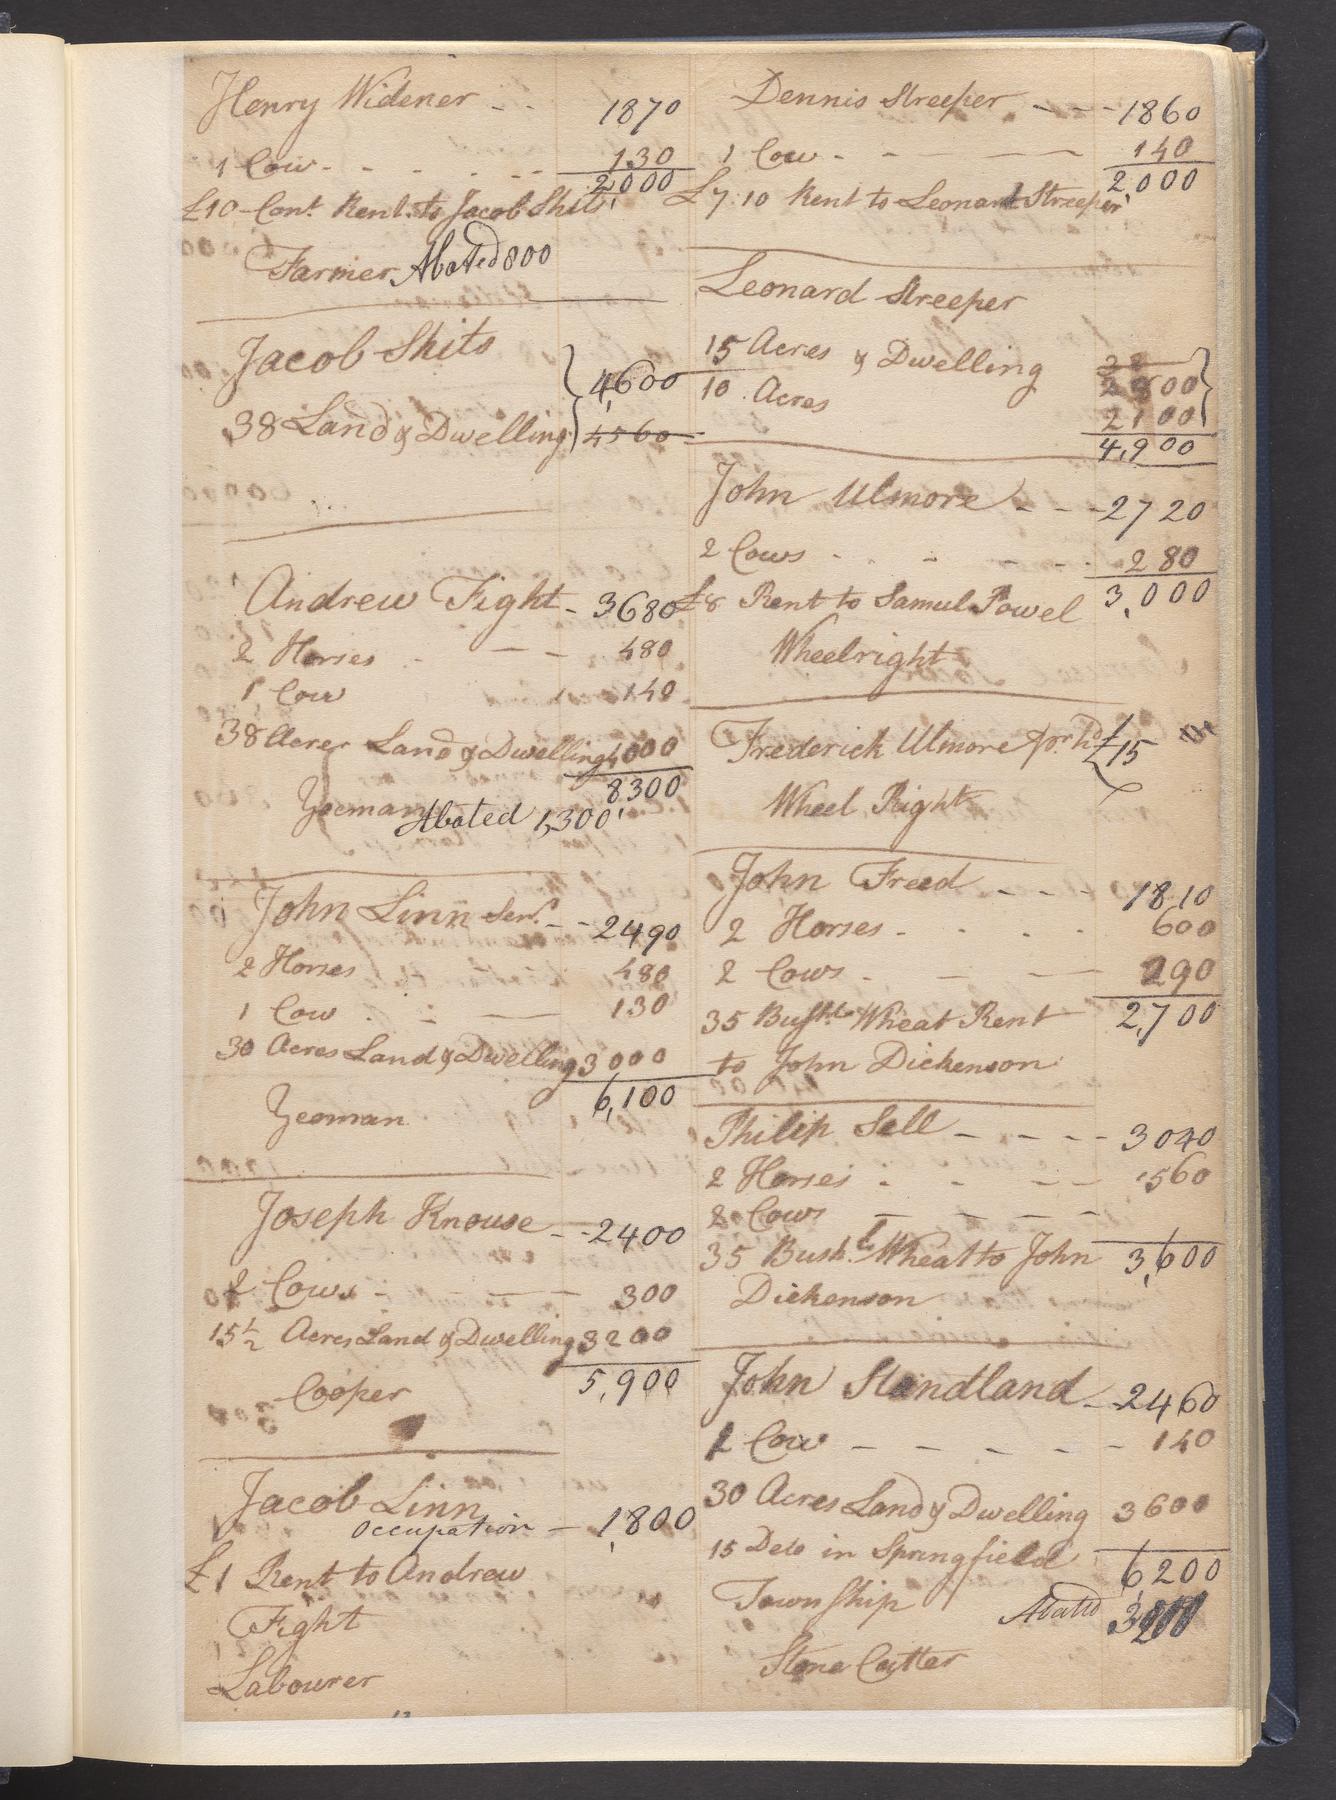 Henry Widener - - 1870
1 Cow - - - - - - 130
2,000
£10 - Cont. Rent to Jacob Shits
Farmer Abated 800
Jacob Shits
4,600
38 Land & Dwelling 4560
Andrew Fight - 3680
2 Horses - - - 480
1 Cow 140
38 Acres Land & Dwelling 4000
8300
Yeoman Abated 1,300
John Linn Senr. - - 2490
2 Horses 480
1 Cow . - — 130
30 Acres Land & Dwelling 3000
6,100
Yeoman
Joseph Knouse - - 2400
2 Cows - - - - 300
15 1/2 Acres Land & Dwelling 3200
5,900
Cooper
Jacob Linn
Occupation - 1,800
£1 Rent to Andrew
Fight
Labourer
Dennis Streeper - - - 1860
1 Cow - - — — 140
2,000
£7.10 Rent to Leonard Streeper
Leonard Streeper
15 Acres & Dwelling 2800
10 Acres 2100
4,900
John Ulmore - - - 2720
2 Cows - - - - - 280
3,000
£8 Rent to Samul Powel
Wheelright
Frederick Ulmore pr. hd £15
Wheel Right
John Freed - - - 1810
2 Horses - - - - 600
2 Cows - - — 290
35 Bushls Wheat Rent 2,700
to John Dickenson
Philip Sell - - - - 3040
2 Horses - - - - 560
2 Cows - - - - -
35 Bushl. Wheat to John 3,600
Dickenson
John Standland - - 2460
1 Cow - - - - - - 140
30 Acres Land & Dwelling 3600
15 Deto in Springfield
6200
Township Abated
Stone Cutter